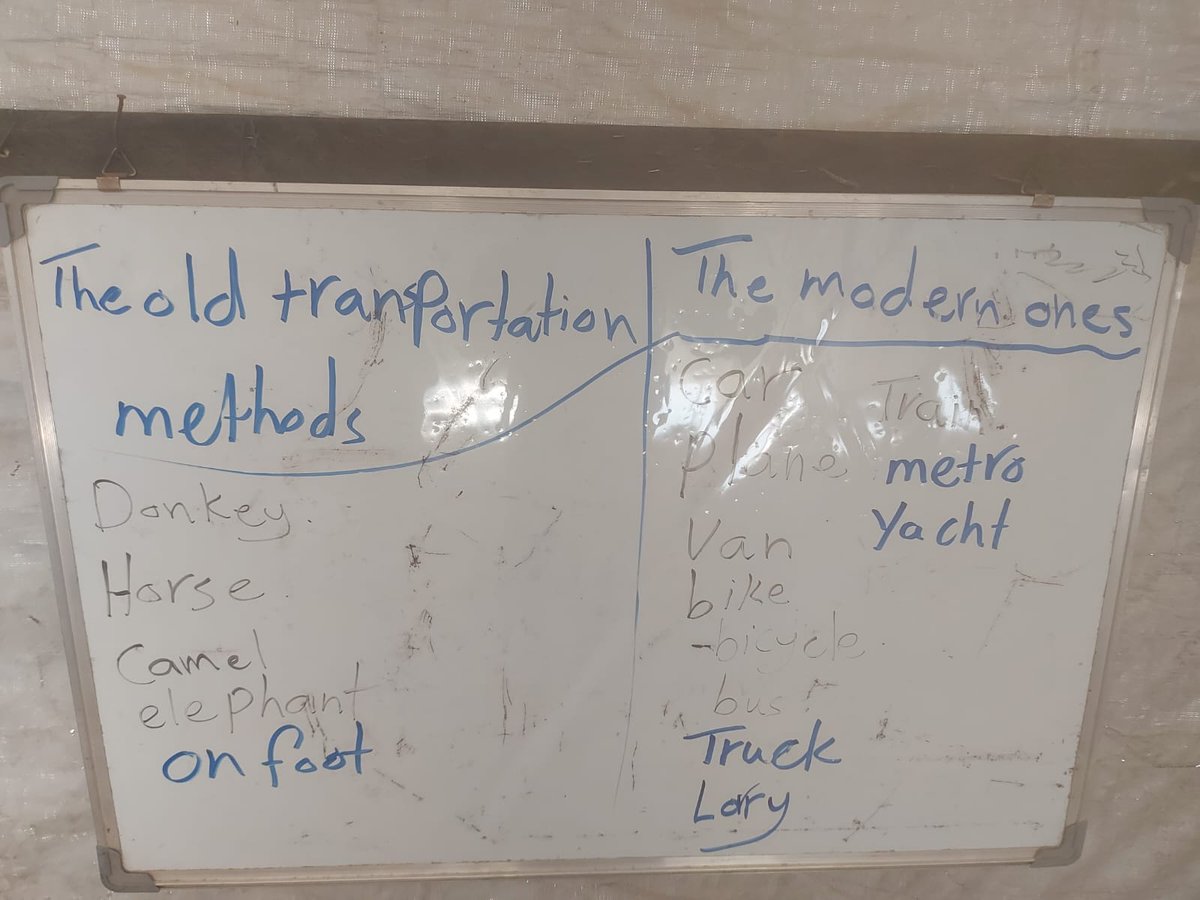 The old transportation
methods
Donkey.
Horse.
Camel
elephant
on foot
The modern ones
Car
plane
Van
bike
-bicycle.
bus
Truck
Lory
Train
metro
Yacht